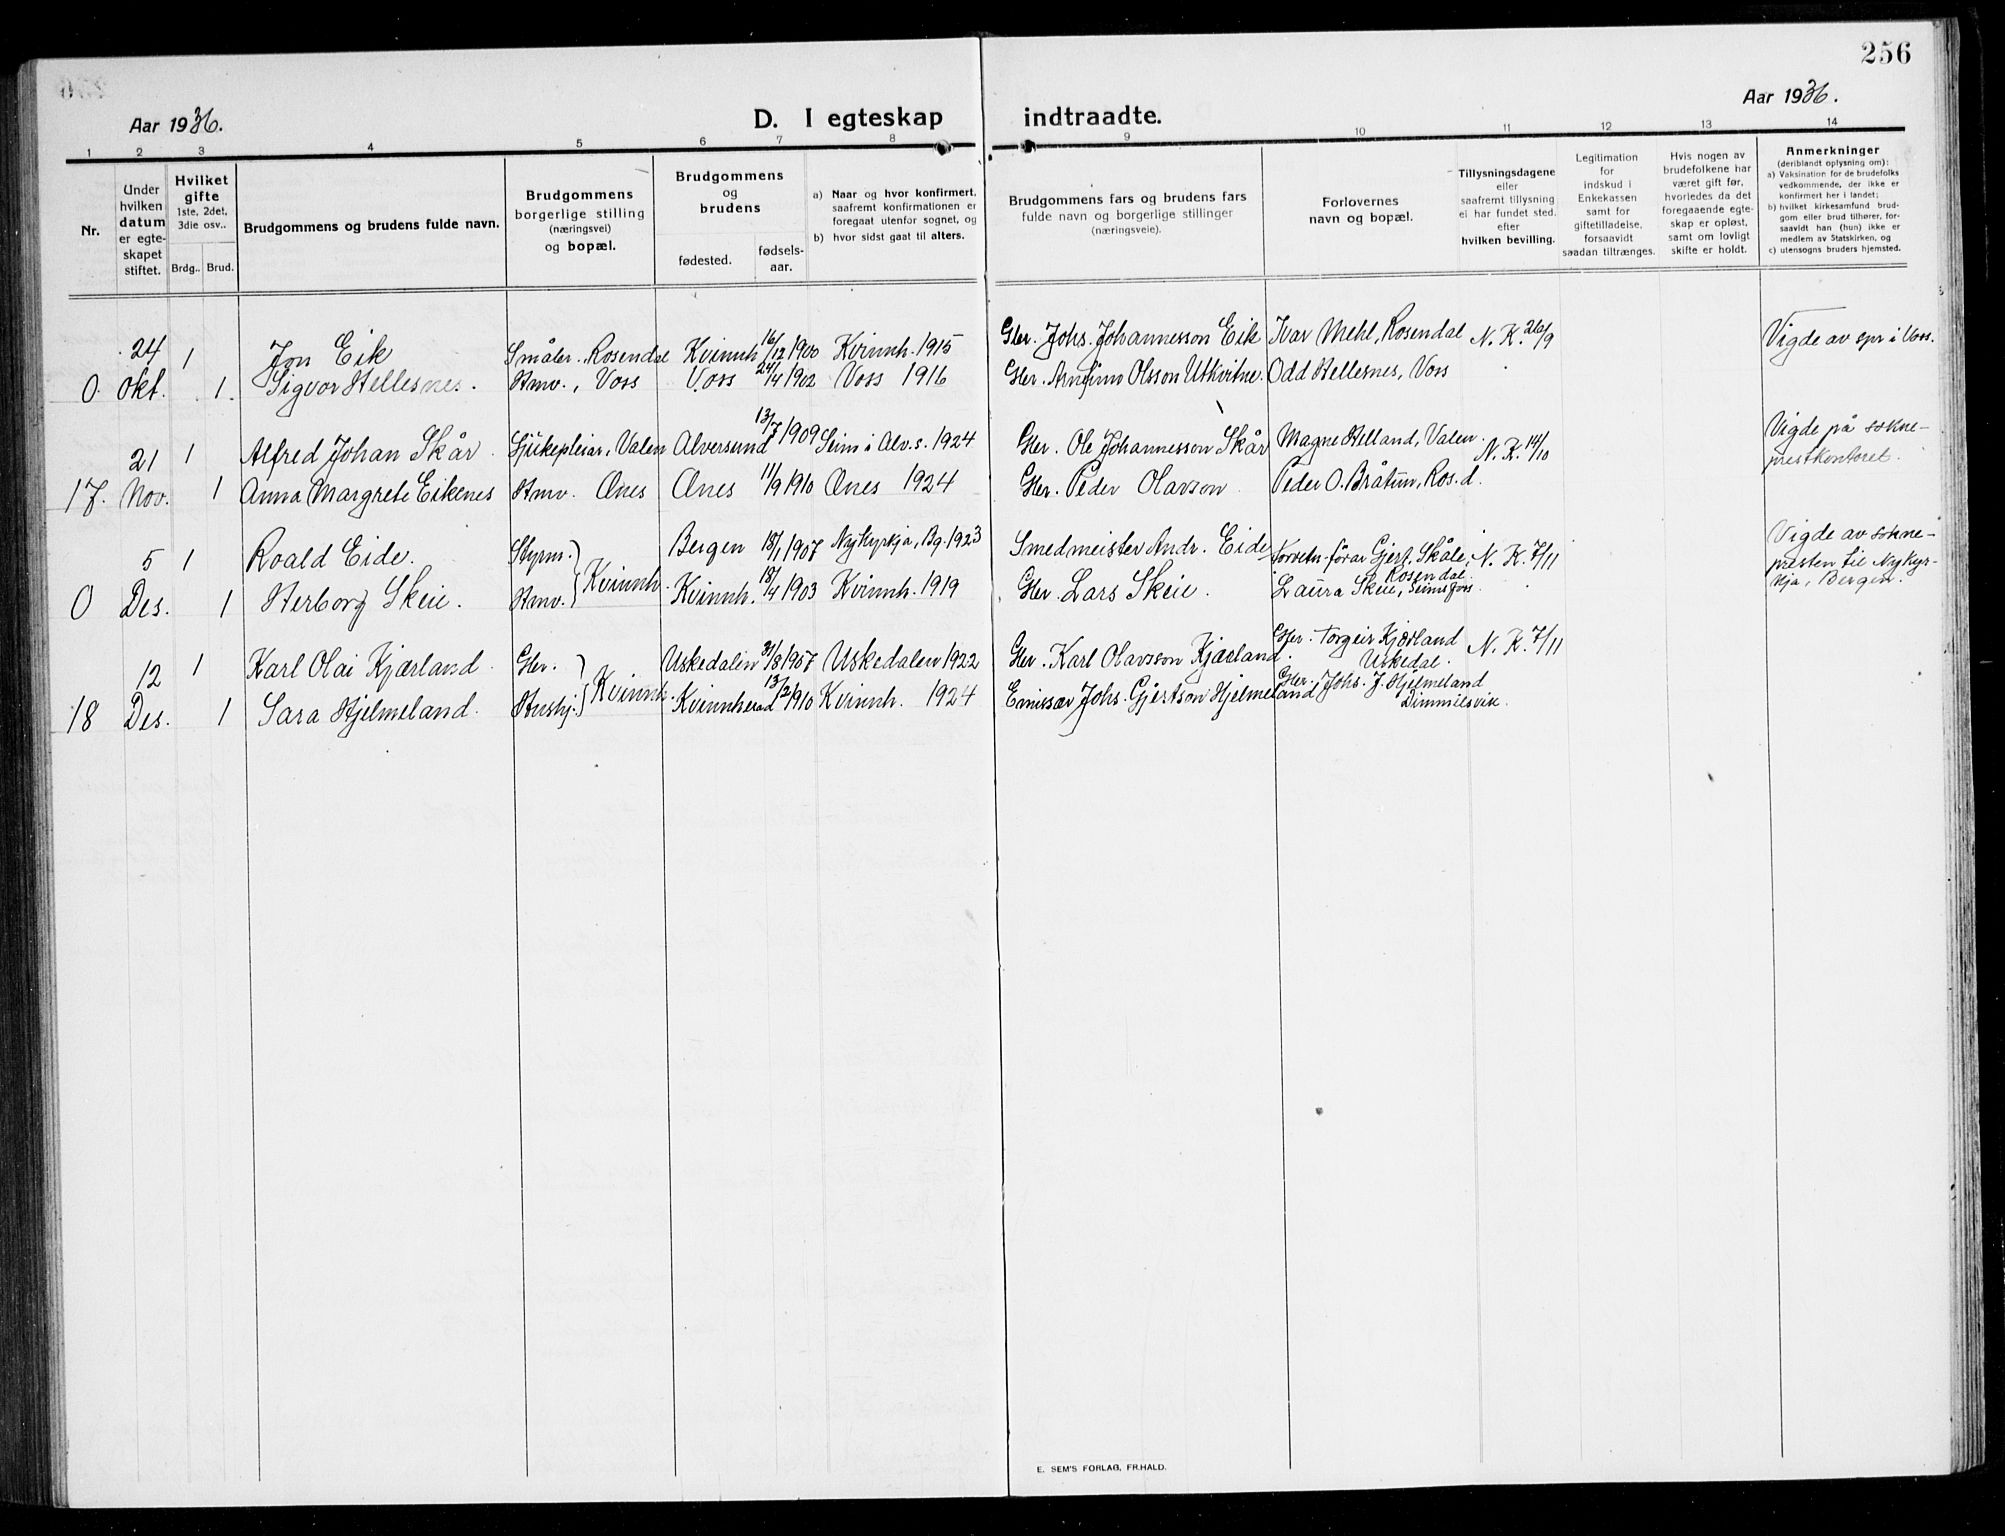 256
Aar 1936.
D. I egteskap indtraadte.
Aar 1936.
1 2 3 4 5 6 7 8 9 10 11 12 13 14
Nr.
Under hvilken datum er egteskapet stiftet.
Hvilket gifte 1ste, 2det, 3die osv..
Brdg.. Brud.
Brudgommens og brudens fulde navn.
Brudgommens borgerlige stilling (næringsvei) og bopæl.
Brudgommens og brudens
fødested.
fødsels-aar.
a) Naar og hvor konfirmert, saafremt konfirmationen er foregaat utenfor sognet, og
b) hvor sidst gaat til alters.
Brudgommens fars og brudens fars fulde navn og borgerlige stillinger (næringsveie).
Forlovernes navn og bopæl.
Tillysningsdagene eller saafremt tillysning ei har fundet sted, efter hvilken bevilling.
Legitimation for indskud i Enkekassen samt for giftetilladelse, forsaavidt saadan tiltrænges.
Hvis nogen av brudefolkene har været gift før, hvorledes da det foregaaende egteskap er opløst, samt om lovligt skifte er holdt.
Anmerkninger (deriblandt oplysning om):
a) Vaksination for de brudefolks vedkommende, der ikke er konfirmert her i landet;
b) hvilket kirkesamfund brudgom eller brud tilhører, forsaavidt han (hun) ikke er medlem av Statskirken, og
c) utensogns bruders hjemsted.
24 1 Jon Eik Småler. Rosendal Kvinnh 16/12 1900 Kvinnh. 1915 Gbr. Johs. Johannesson Eik Ivar Mehl, Rosendal N. K. 26/9 Vigde av spr i Voss.
0 Okt. 1. Sigvor Hellesnes. Hmv., Voss Voss 24/4 1902 Voss 1916 Gbr. Arnfinn Olsson Utkvitne. Odd Hellesnes, Voss
21 1 Alfred Johan Skår. Sjukepleiar, Valen Alversund 13/7 1909 Seim i Alv. s. 1924 Gbr. Ole Johannesson Skår Magne Helland, Valen. N. K. 14/10 Vigde på sokne-
prestkontoret.
17. Nov. 1 Anna Margrete Eikenes Hmv. Ænes Ænes 11/9 1910 Ænes 1924 Gbr. Peder Olavson. Peder O. Bråtun, Ros.d.
5 1 Roald Eide. Styrm. Bergen 18/1 1907 Nykyrkja, Bg. 1923 Smedmeister Andr. Eide Forretn.förar Gjert Skåle, Rosendal. N. K. 7/11 Vigde av sokne-
presten til Nykyr-
kja, Bergen.
0 Des. 1 Herborg Skeie. Hmv. Kvinnh. Kvinnh. 18/4 1903 Kvinnh. 1919 Gbr. Lars Skeie. Laura Skeie,
12 1 Karl Olai Kjærland. Gbr. Uskedalen 31/8 1907 Uskedalen 1922 Gbr. Karl Olavsson Kjærland. Gbr. Torgeir Kjærland Uskedal. N. K. 7/11
18 Des. 1 Sara Hjelmeland. Hushj. Kvinnh. Kvinnherad 13/2 1910 Kvinnh. 1924 Emissær Johs. Gjertson Hjelmeland Gbr. Johs. J. Hjelmeland Dimmilsvik.
E. SEM'S FORLAG, FR.HALD.